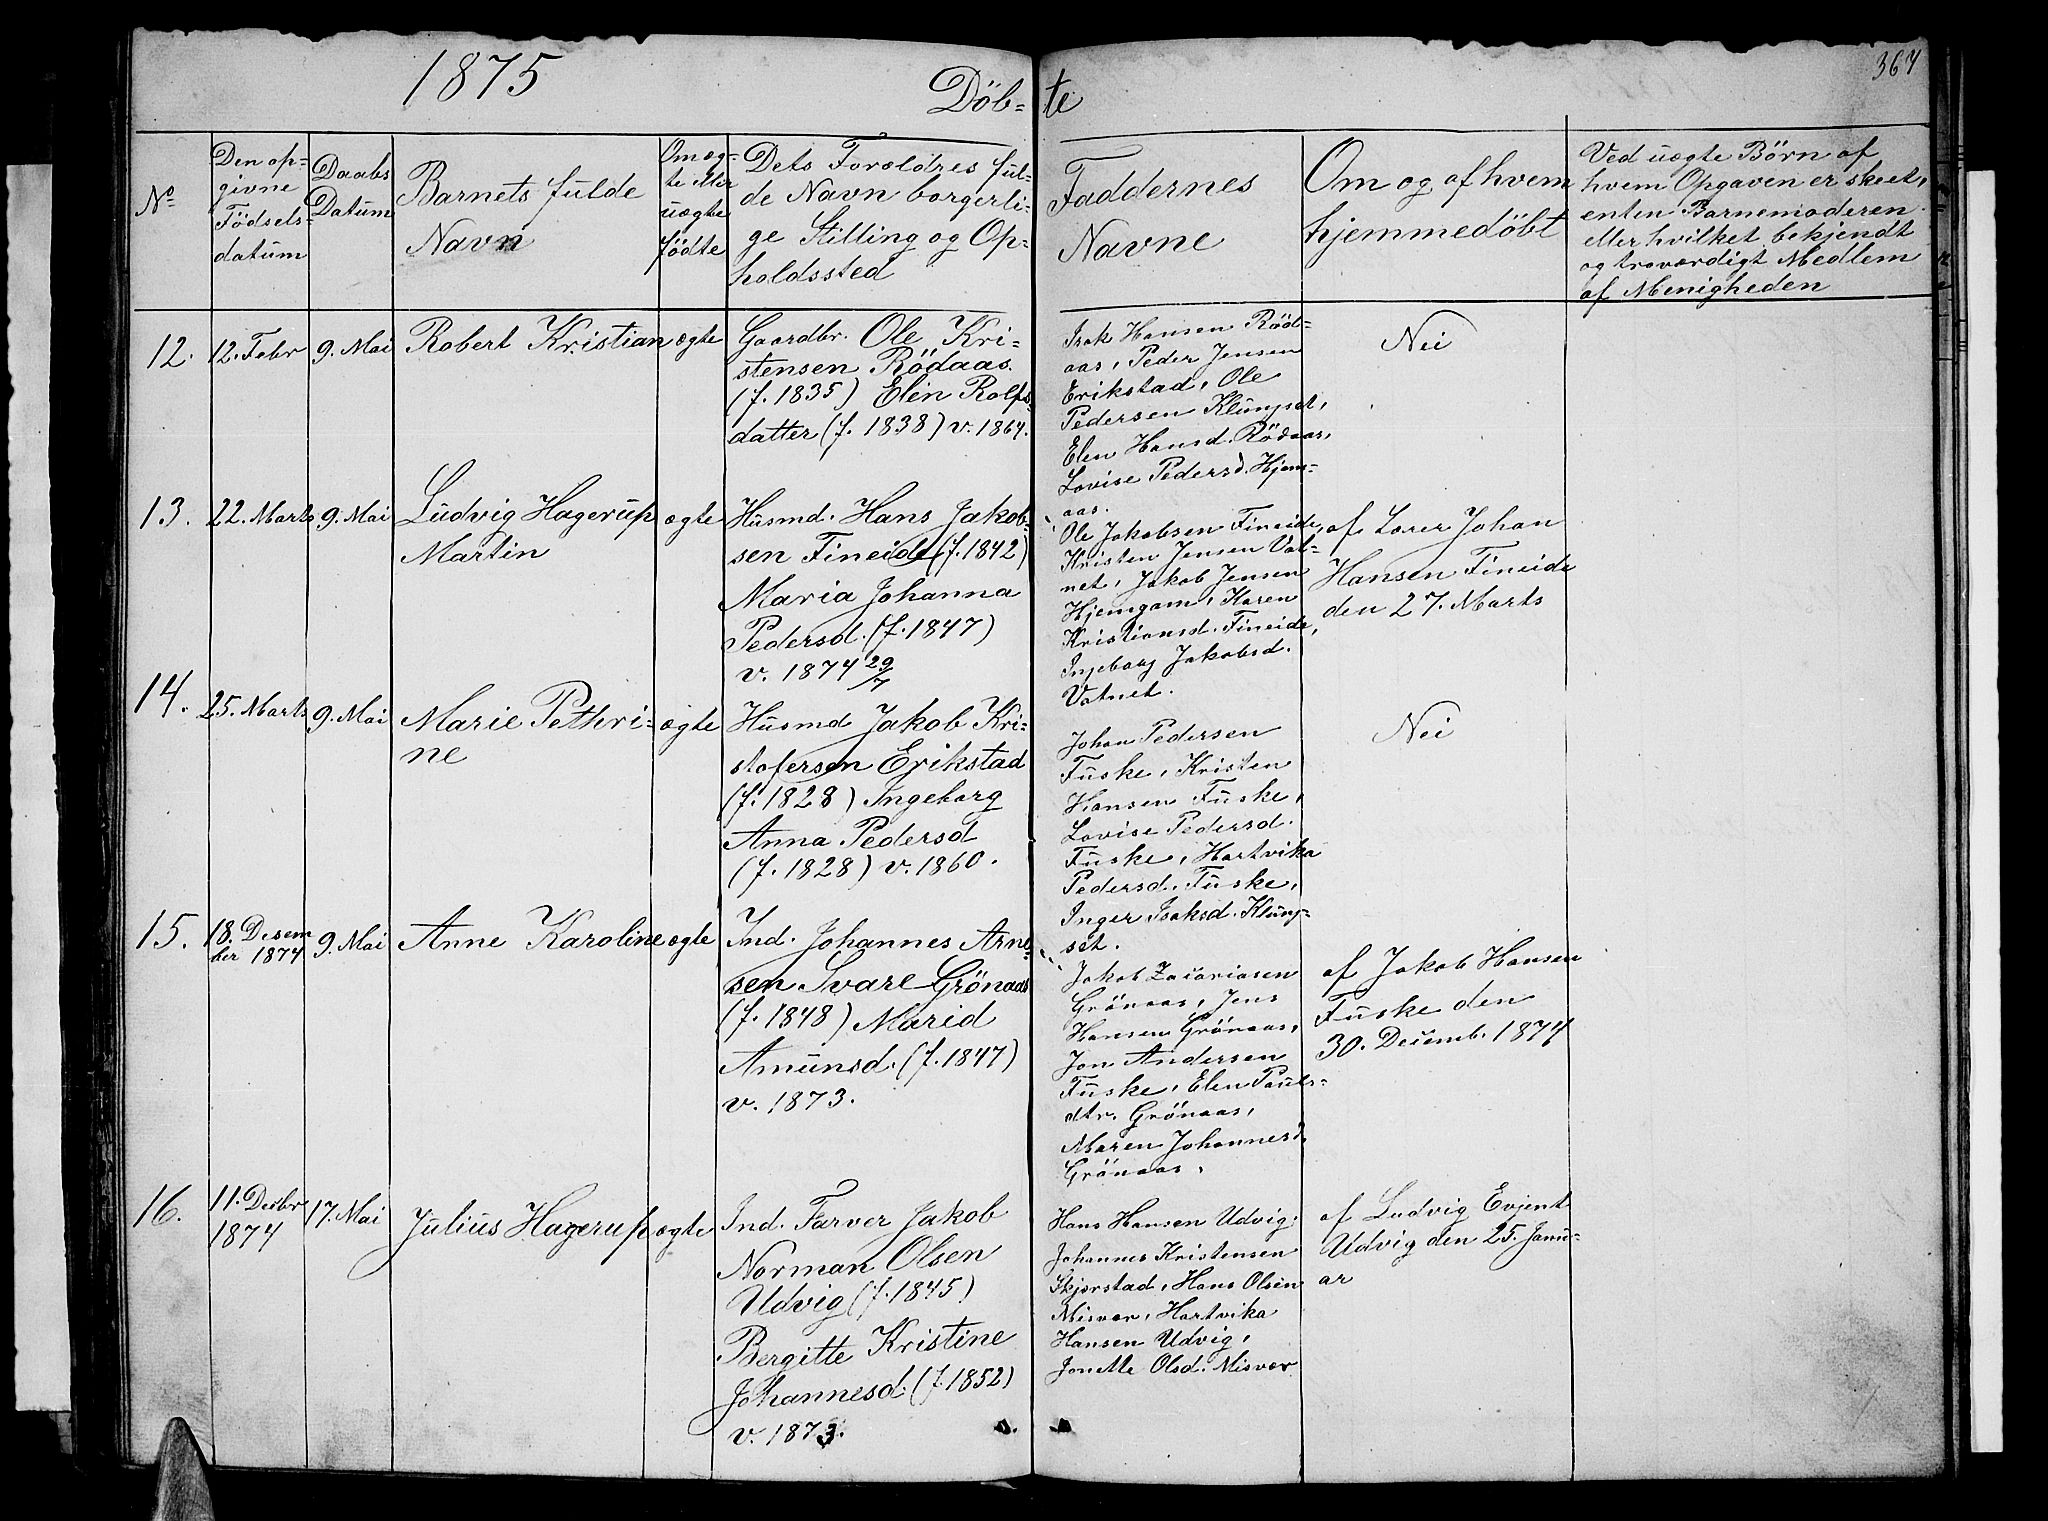 1875
Döb-
te
367
No
Den op-
givne
Födsels-
datum
Daabs
Datum
Barnets fulde
Navn
Om æg-
te eller
uægte
födte
Dets Forældres ful-
de Navn borgerli-
ge Stilling og Op-
holdssted
Faddernes
Navne
Om og af hvem
hjemmedöbt
Ved uægte Börn af
hvem Opgaven er skeet,
enten Barnemoderen
eller hvilket bekjendt
og troværdigt Medlem
af Menigheden
12.
12. Febr
9. Mai
Robert Kristian
ægte
Gaardbr. Ole Kri-
stensen Rödaas.
(f. 1835) Elen Rolfs-
datter (f. 1838) v. 1864.
Isak Hansen Röd-
aas, Peder Jensen
Erikstad, Ole
Pedersen Klungset,
Elen Hansd. Rödaas,
Lovise Pedersd. Hjem-
aas.
Nei
13.
22. Marts
9. Mai
Ludvig Hagerup
Martin
ægte
Husmd. Hans Jakob-
sen Fineide (f. 1842)
Maria Johanna
Pedersd. (f. 1847)
v. 1874 29/7
Ole Jakobsen Fineide,
Kristen Jensen Vat-
net, Jakob Jensen
Hjemgam, Karen
Kristiansd. Fineide,
Ingeborg Jakobsd.
Vatnet.
af Lærer Johan
Hansen Fineide
den 27. Marts
14.
25. Marts
9. Mai
Marie Pethri-
ne
ægte
Husmd Jakob Kri-
stofersen Erikstad
(f. 1828) Ingeborg
Anna Pedersd
(f. 1828) v. 1860.
Johan Pedersen
Fuske, Kristen
Hansen Fuske,
Lovise Pedersd.
Fuske, Hartvika
Pedersd. Fuske,
Inger Isaksd. Klung-
set.
Nei
15.
18. Desem
ber 1874
9. Mai
Anne Karoline
ægte
Ind. Johannes Arne-
sen Svare Grönaas
(f. 1848) Marid
Amunsd. (f. 1847)
v. 1873.
Jakob Zacariasen
Grönaas, Jens
Hansen Grönaas,
Jon Andersen
Fuske, Elen Pauls-
dtr. Grönaas,
Maren Johannesd.
Grönaas.
af Jakob Hansen
Fuske den
30. Decemb. 1874
16.
11. Decbr
1874
17. Mai
Julius Hagerup
ægte
Ind. Farver Jakob
Norman Olsen
Udvig (f. 1845)
Bergitte Kristine
Johannesd. (f. 1852)
v. 1873.
Hans Hansen Udvig,
Johannes Kristensen
Skjerstad, Hans Olsen
Misvær, Hartvika
Hansen Udvig,
Jonette Olsd. Misvær
af Ludvig Evjent
Udvig den 25. Janu-
ar